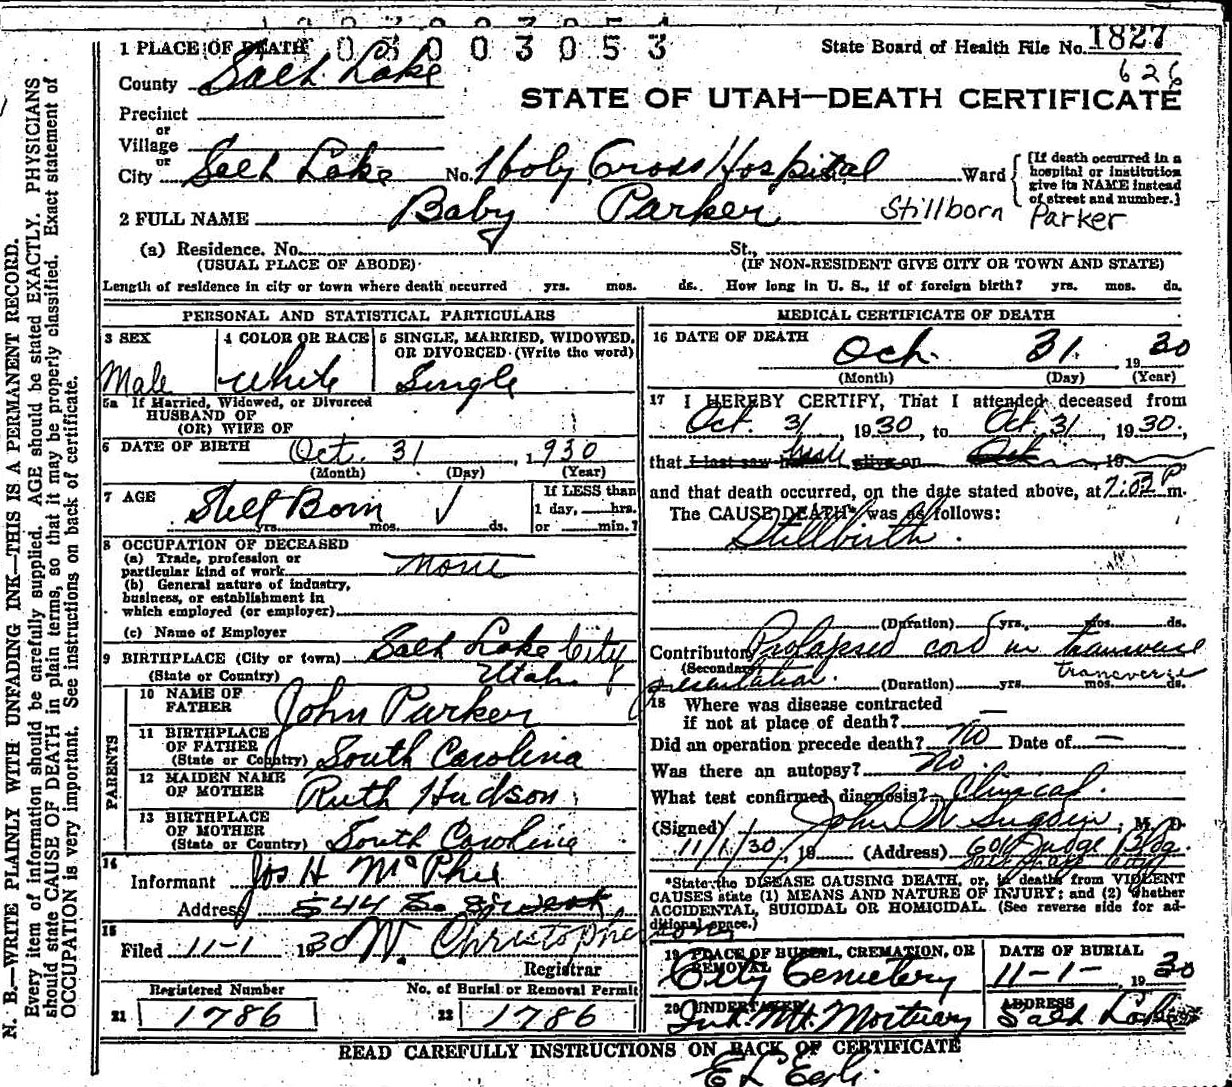 003053
1 PLACE OF DEATH
State Board of Health File No. 1827
626
County Salt Lake
STATE OF UTAH—DEATH CERTIFICATE
Precinct
or
Village
or
City Salt Lake No. Holy Cross Hospital Ward
[If death occurred in a hospital or institution give its NAME instead of street and number.]
2 FULL NAME Baby Parker Stillborn Parker
(a) Residence. No. St.,
(USUAL PLACE OF ABODE) (IF NON-RESIDENT GIVE CITY OR TOWN AND STATE)
Length of residence in city or town where death occurred yrs. mos. ds. How long in U. S., if of foreign birth? yrs. mos. ds.
PERSONAL AND STATISTICAL PARTICULARS
3 SEX
Male
4 COLOR OR RACE
White
5 SINGLE, MARRIED, WIDOWED,
OR DIVORCED (Write the word)
Single
5a If Married, Widowed, or Divorced
HUSBAND OF
(OR) WIFE OF
6 DATE OF BIRTH Oct. 31, 1930
(Month) (Day) (Year)
7 AGE
Still Born
yrs. mos. ds.
If LESS than
1 day, hrs.
or min.?
8 OCCUPATION OF DECEASED
(a) Trade, profession or
particular kind of work None
(b) General nature of industry,
business, or establishment in
which employed (or employer)
(c) Name of Employer
9 BIRTHPLACE (City or town) Salt Lake City
(State or Country) Utah
PARENTS
10 NAME OF
FATHER John Parker
11 BIRTHPLACE
OF FATHER
(State or Country) South Carolina
12 MAIDEN NAME
OF MOTHER Ruth Hudson
13 BIRTHPLACE
OF MOTHER
(State or Country) South Carolina
14
Informant Jos H McPhie
Address 544 So
15
Filed 11-1 1930 W. Christopherson
Registrar
Registered Number
21 1786
No. of Burial or Removal Permit
22 1786
MEDICAL CERTIFICATE OF DEATH
16 DATE OF DEATH
Oct. 31, 1930
(Month) (Day) (Year)
17 I HEREBY CERTIFY, That I attended deceased from
Oct. 31, 1930, to Oct. 31, 1930,
that I last saw h alive on Oct 19
and that death occurred, on the date stated above, at 7:03 P m.
The CAUSE DEATH* was as follows:
Stillbirth.
(Duration) yrs. mos. ds.
Contributory Prolapsed cord in transverse
(Secondary)
presentation. transverse
(Duration) yrs. mos. ds.
18 Where was disease contracted
if not at place of death? —
Did an operation precede death? No Date of —
Was there an autopsy? No.
What test confirmed diagnosis? Clinical.
(Signed) John W Sugden, M. D.
11/1/30, 19 (Address) 604 Judge Bldg.
Salt Lake City
*State the DISEASE CAUSING DEATH, or, in deaths from VIOLENT
CAUSES state (1) MEANS AND NATURE OF INJURY; and (2) Whether
ACCIDENTAL, SUICIDAL OR HOMICIDAL. (See reverse side for ad-
ditional space.)
19 PLACE OF BURIAL, CREMATION, OR
REMOVAL
City Cemetery
DATE OF BURIAL
11-1-, 1930
20 UNDERTAKER
Int. Mt. Mortuary
ADDRESS
Salt Lake
READ CAREFULLY INSTRUCTIONS ON BACK OF CERTIFICATE
N. B.—WRITE PLAINLY WITH UNFADING INK—THIS IS A PERMANENT RECORD.
Every item of information should be carefully supplied. AGE should be stated EXACTLY. PHYSICIANS
should state CAUSE OF DEATH in plain terms, so that it may be properly classified. Exact statement of
OCCUPATION is very important. See instructions on back of certificate.